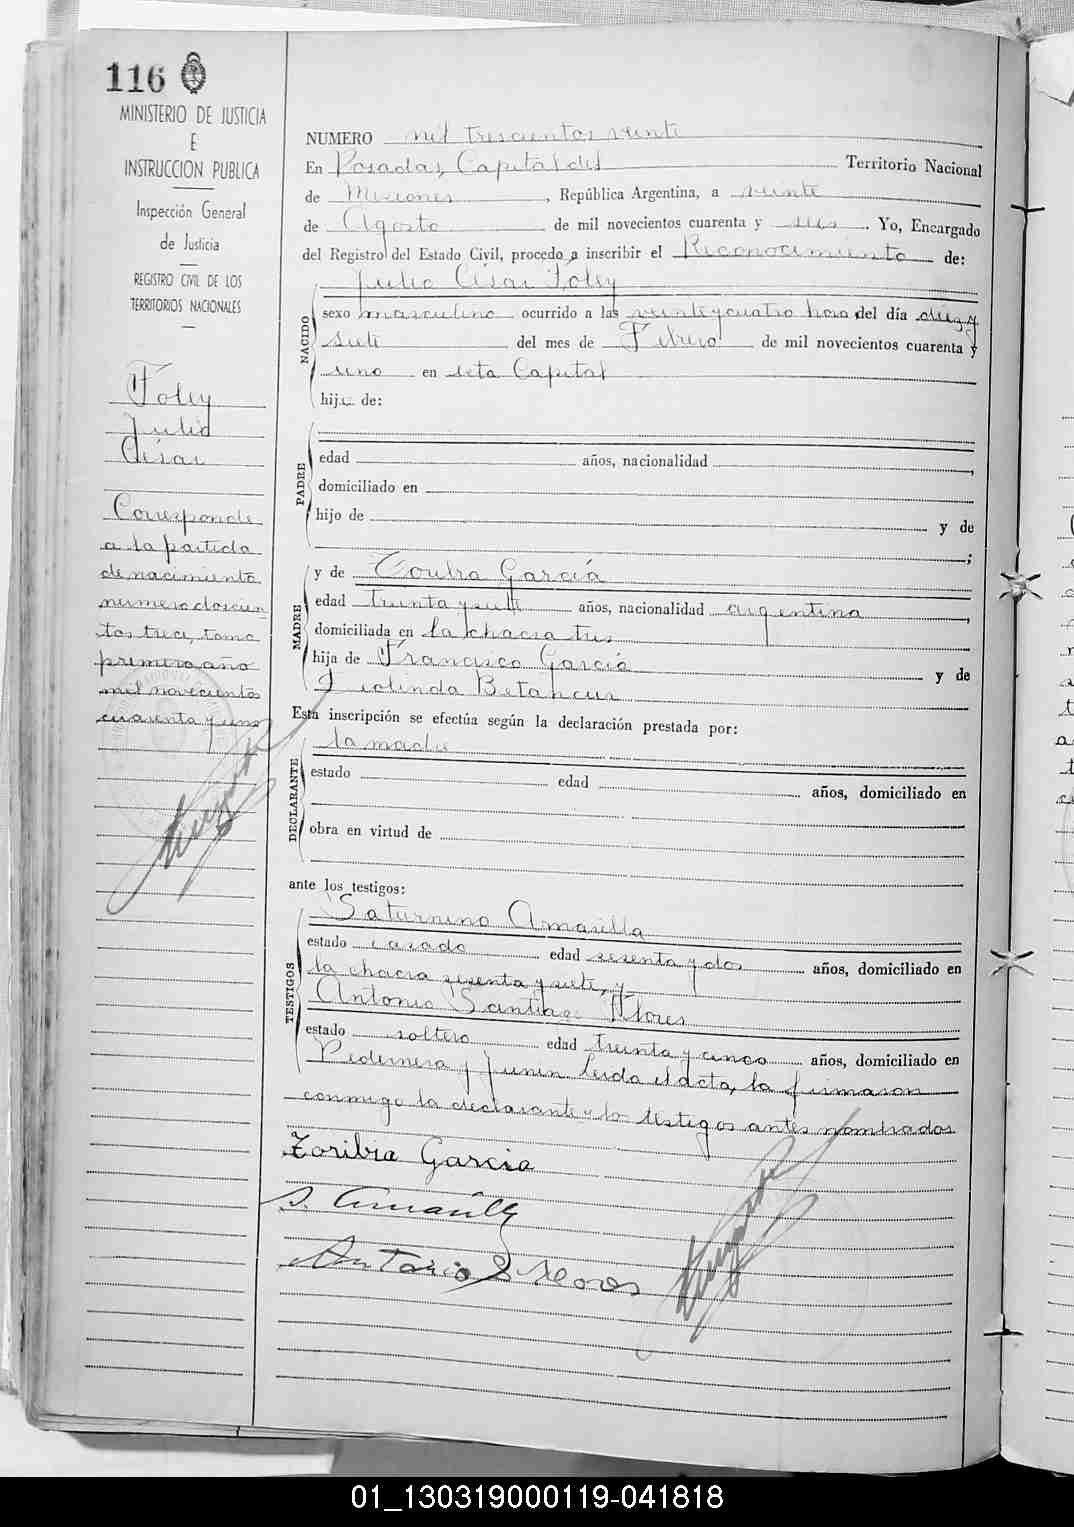 116
MINISTERIO DE JUSTICIA
E
INSTRUCCION PUBLICA
Inspección General
de Justicia
REGISTRO CIVIL DE LOS
TERRITORIOS NACIONALES
Foley
Julio
César
Corresponde
a la partida
de nacimiento
número doscien
tos trece, tomo
primero año
mil novecientos
cuarenta y uno
NUMERO mil trescientos veinte
En Posadas, Capital del Territorio Nacional
de Misiones, República Argentina, a veinte
de Agosto de mil novecientos cuarenta y seis. Yo, Encargado
del Registro del Estado Civil, procedo a inscribir el Reconocimiento de:
Julio César Foley
NACIDO
sexo masculino ocurrido a las veinte y cuatro hora del día diez y
siete del mes de Febrero de mil novecientos cuarenta y
uno en esta Capital
hijo de:
PADRE
edad años, nacionalidad ,
domiciliado en
hijo de y de
;
MADRE
y de Toribia García
edad treinta y siete años, nacionalidad argentina,
domiciliada en la chacra tres
hija de Francisco García y de
Betancur
Esta inscripción se efectúa según la declaración prestada por:
la madre
DECLARANTE
estado edad años, domiciliado en
obra en virtud de
ante los testigos:
TESTIGOS
Saturnino Amarilla
estado casado edad sesenta y dos años, domiciliado en
la chacra sesenta y siete, y
Antonio Santiago Flores
estado soltero edad treinta y cinco años, domiciliado en
Pedernera y Junin leida el acta, la firmaron
conmigo la declarante y los testigos antes nombrados
Toribia Garcia
S. Amarilla
Antonio S Flores
01_130319000119-041818